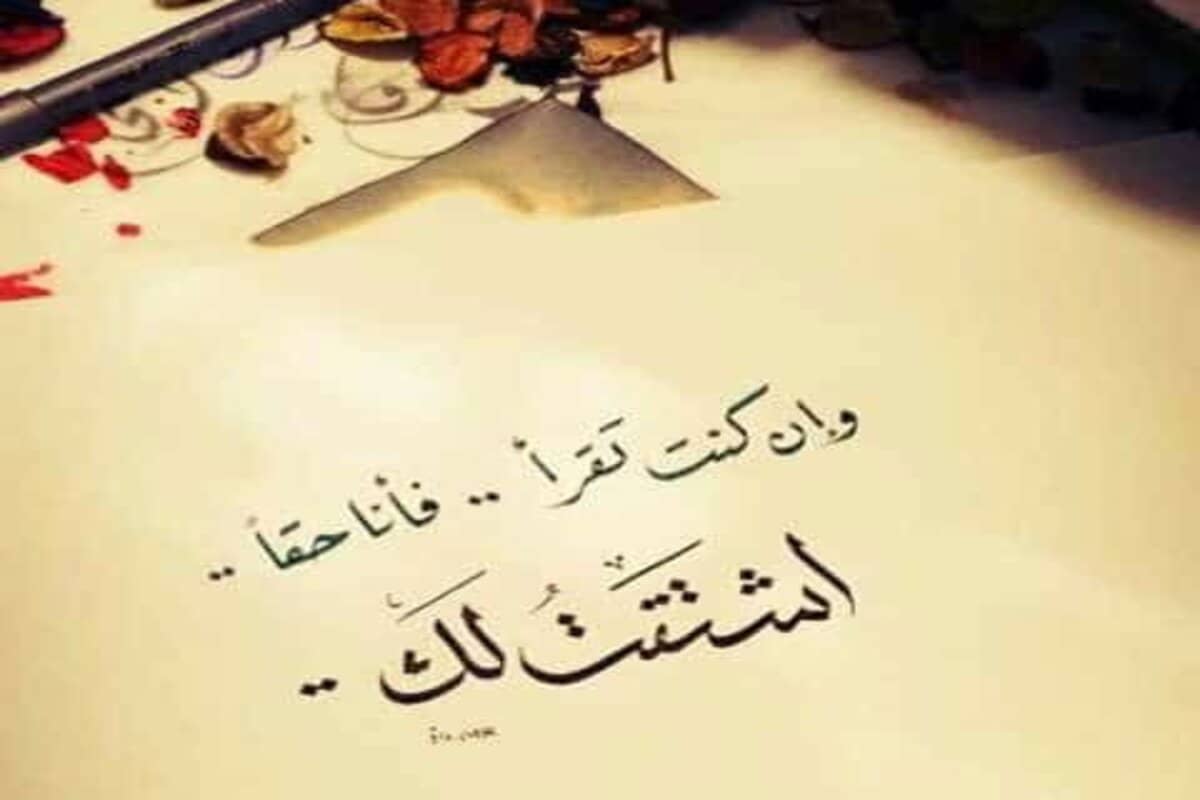 وإن كنتَ تَقرأ .. فأنا حقاً ..
اشتقتُ لكَ ..